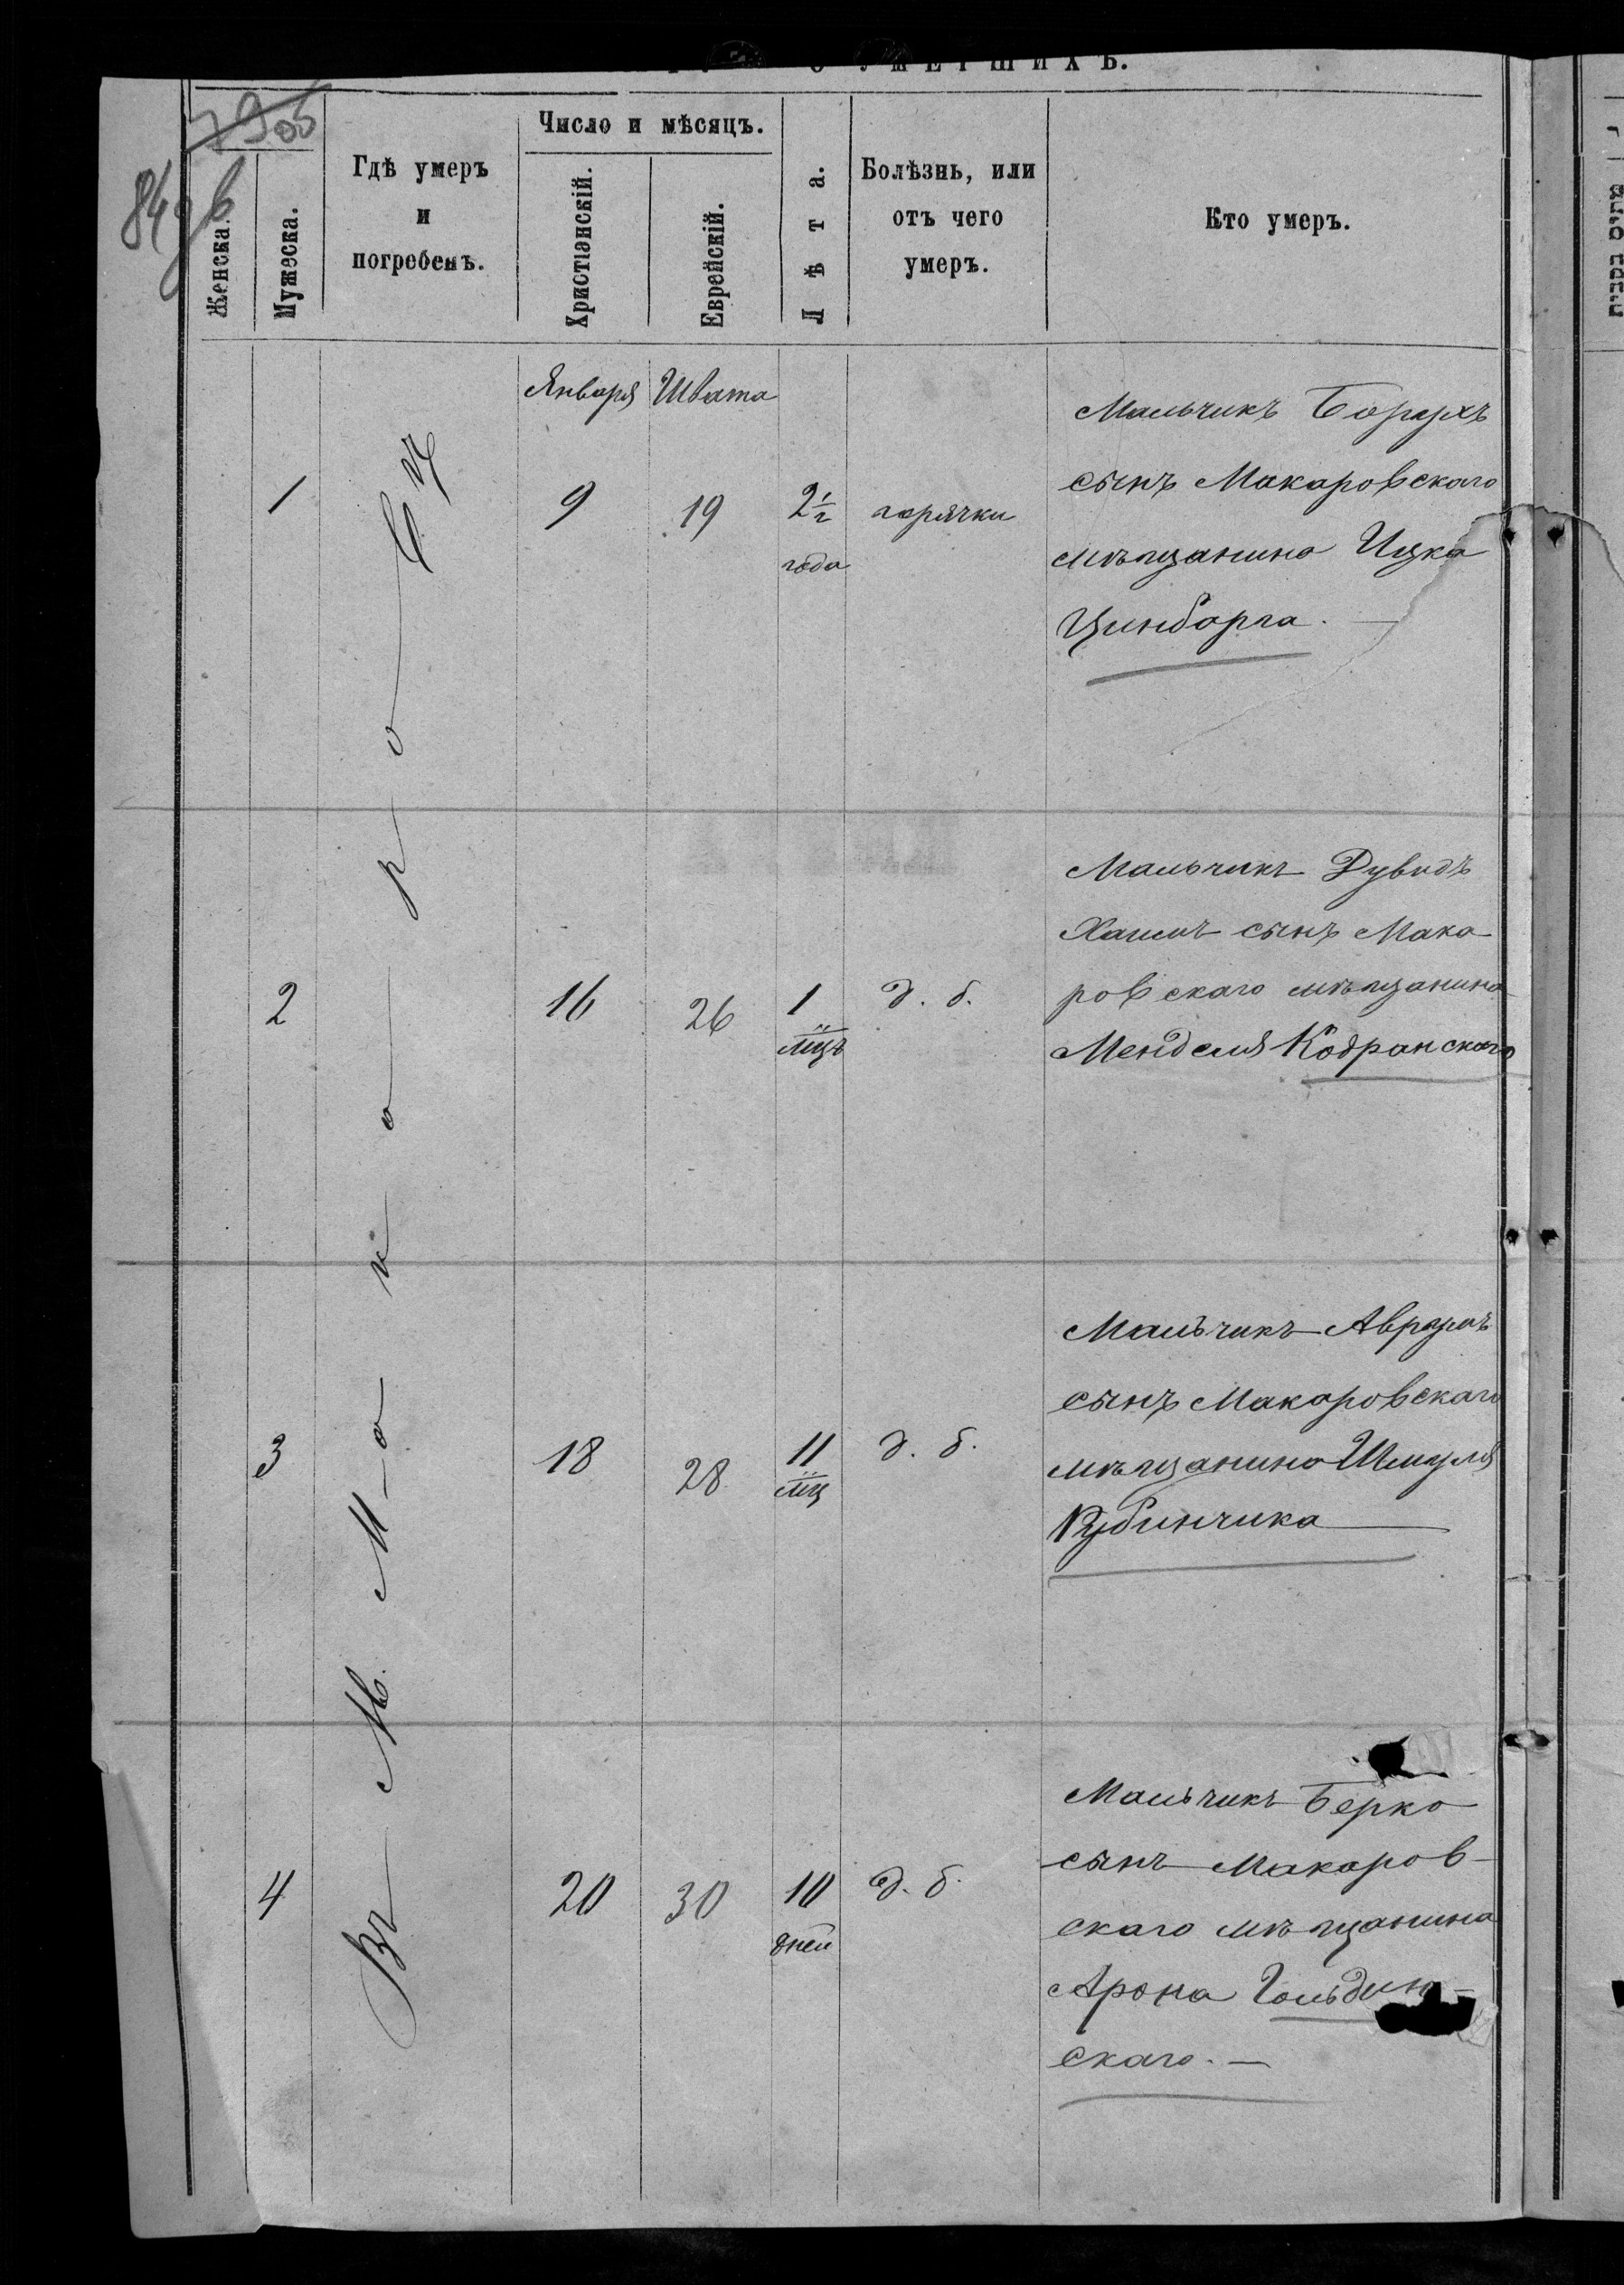 О УМЕРШИХЪ.
1905
849 в
Женска.
Мужеска.
Гдѣ умеръ
и
погребенъ.
Число и мѣсяцъ.
Христіанскій.
Еврейскій.
Лѣта.
Болѣзнь, или
отъ чего
умеръ.
Кто умеръ.
Въ М. Макаровѣ
Января Швата
1 9 19 2½ года горячки
Мальчикъ Борухъ
сынъ Макаровскаго
мѣщанина Ицка
Цинборга. —
2 16 26 1 мцъ д. б.
Мальчикъ Дувидъ
Хаимъ сынъ Мака-
ровскаго мѣщанина
Менделя Кодранскаго
3 18 28 11 мц д. б.
Мальчикъ Аврумъ
сынъ Макаровскаго
мѣщанина Шмуля
Рубинчика —
4 20 30 10 дней д. б.
Мальчикъ Берко
сынъ Макаров-
скаго мѣщанина
Арона Гольдин-
скаго. —